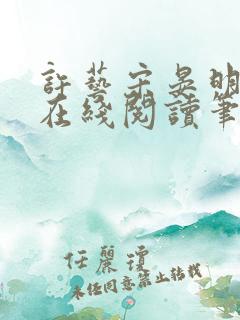 許藝宋晏明
在綫閱讀筆
任麗瓊
未经同意禁止转载